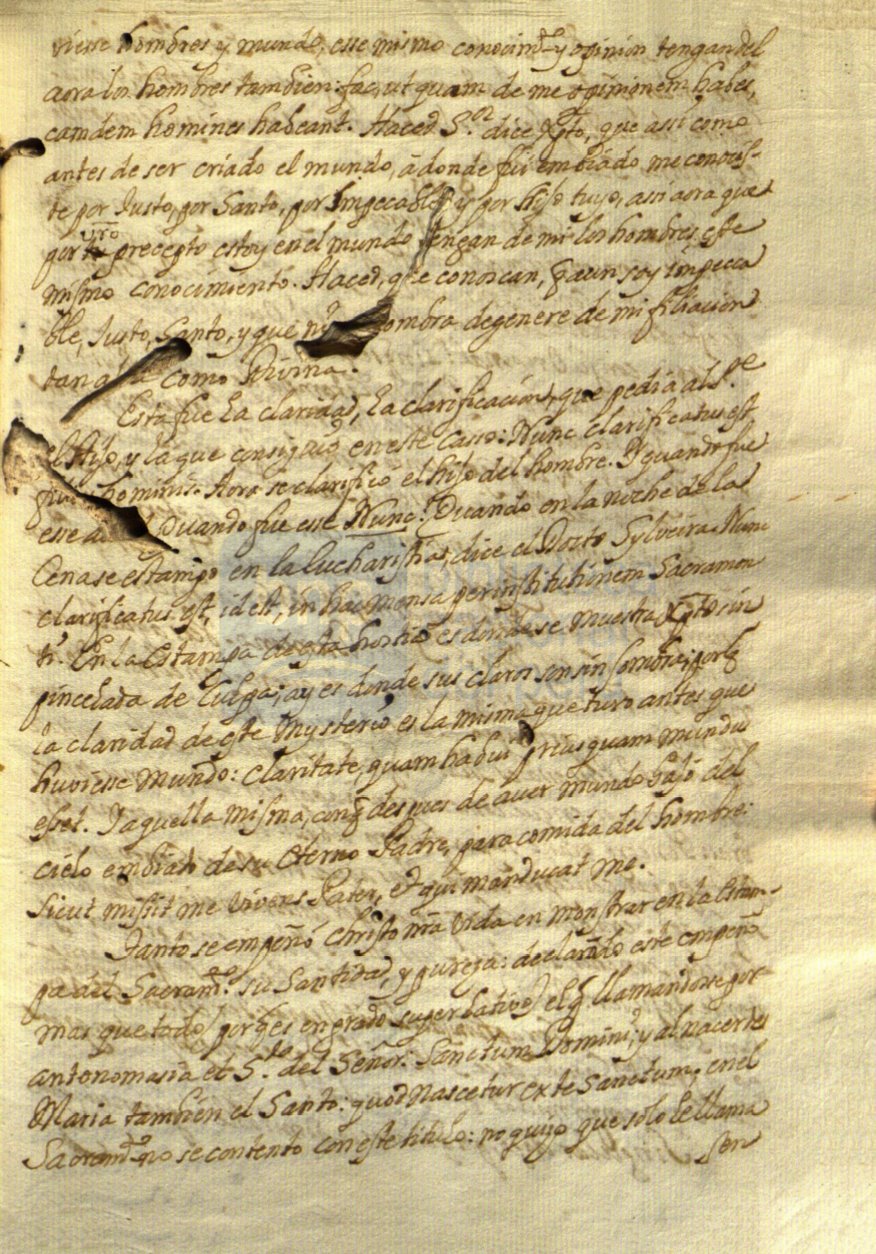 viesse hombres y mundo, esse mismo conocim.to y opinion tengan del
aora los hombres tambien: fac, ut quam de me opinionem habes,
eamdem homines habeant. Haced S.or dice Xpto, que assi como
antes de ser criado el mundo, a donde fui embiado me conocis-
te por Justo, por Santo, por Impecable, y por Hijo tuyo, assi aora que
por vro precepto estoy en el mundo tengan de mi los hombres este
mismo conocimiento. Haced, que conoscan, q aun soy impecca
ble, Justo, Santo, y que ombra degenere de mi filiacion
tan como Divina.
Esta fue la claridad, la clarificacion, que pedia al P.e
el Hijo, y la que consiguio en este Casso: Nunc clarificatus est
hominis. Aora se clarificò el hijo del hombre. Y quando fue
esse Quando fue esse Nunc? Quando en la noche de la
Cena se estampo en la Eucharistia, dice el Docto Sylveira Nunc
clarificatus est, id est, in hac mensa per institutionem Sacramen
ti. En la Estampa de esta hostia es donde se muestra Xpto sin
pincelada de Culpa; ay es donde sus claros son sin sombra; porq
la claridad de este Mysterio, es la misma que tuvo antes que
huviesse Mundo: claritate, quam habui priusquam mundus
esset. Y aquella misma, conq despues de aver mundo bajó del
cielo embiado de su Eterno Padre, para comida del hombre:
sicut missit me vivens Pater, et qui manducat me.
Tanto se empeñó Christo nra vida en monstrar en la Estam-
pa del Sacram.to su Santidad, y pureza: declarando este empeño
mas que todo (porq es en grado superlativo) el q llamandose por
antonomasia el S.to del Señor: Sanctum Domini; y al nacer de
Maria tambien el Santo: quod nascetur ex te Sanctum, en el
Sacram.to no se contento con este titulo: no quizo que solo le llama
sen